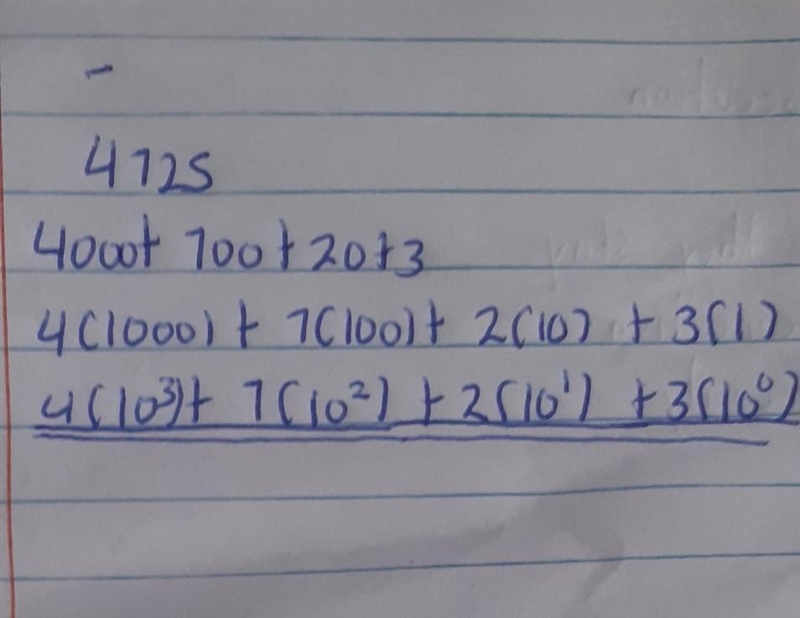 -
4725
4000+ 700+20+3
4(1000) + 7(100)+ 2(10) + 3(1)
4(10³)+ 7(10²) + 2(10¹) + 3(10⁰)